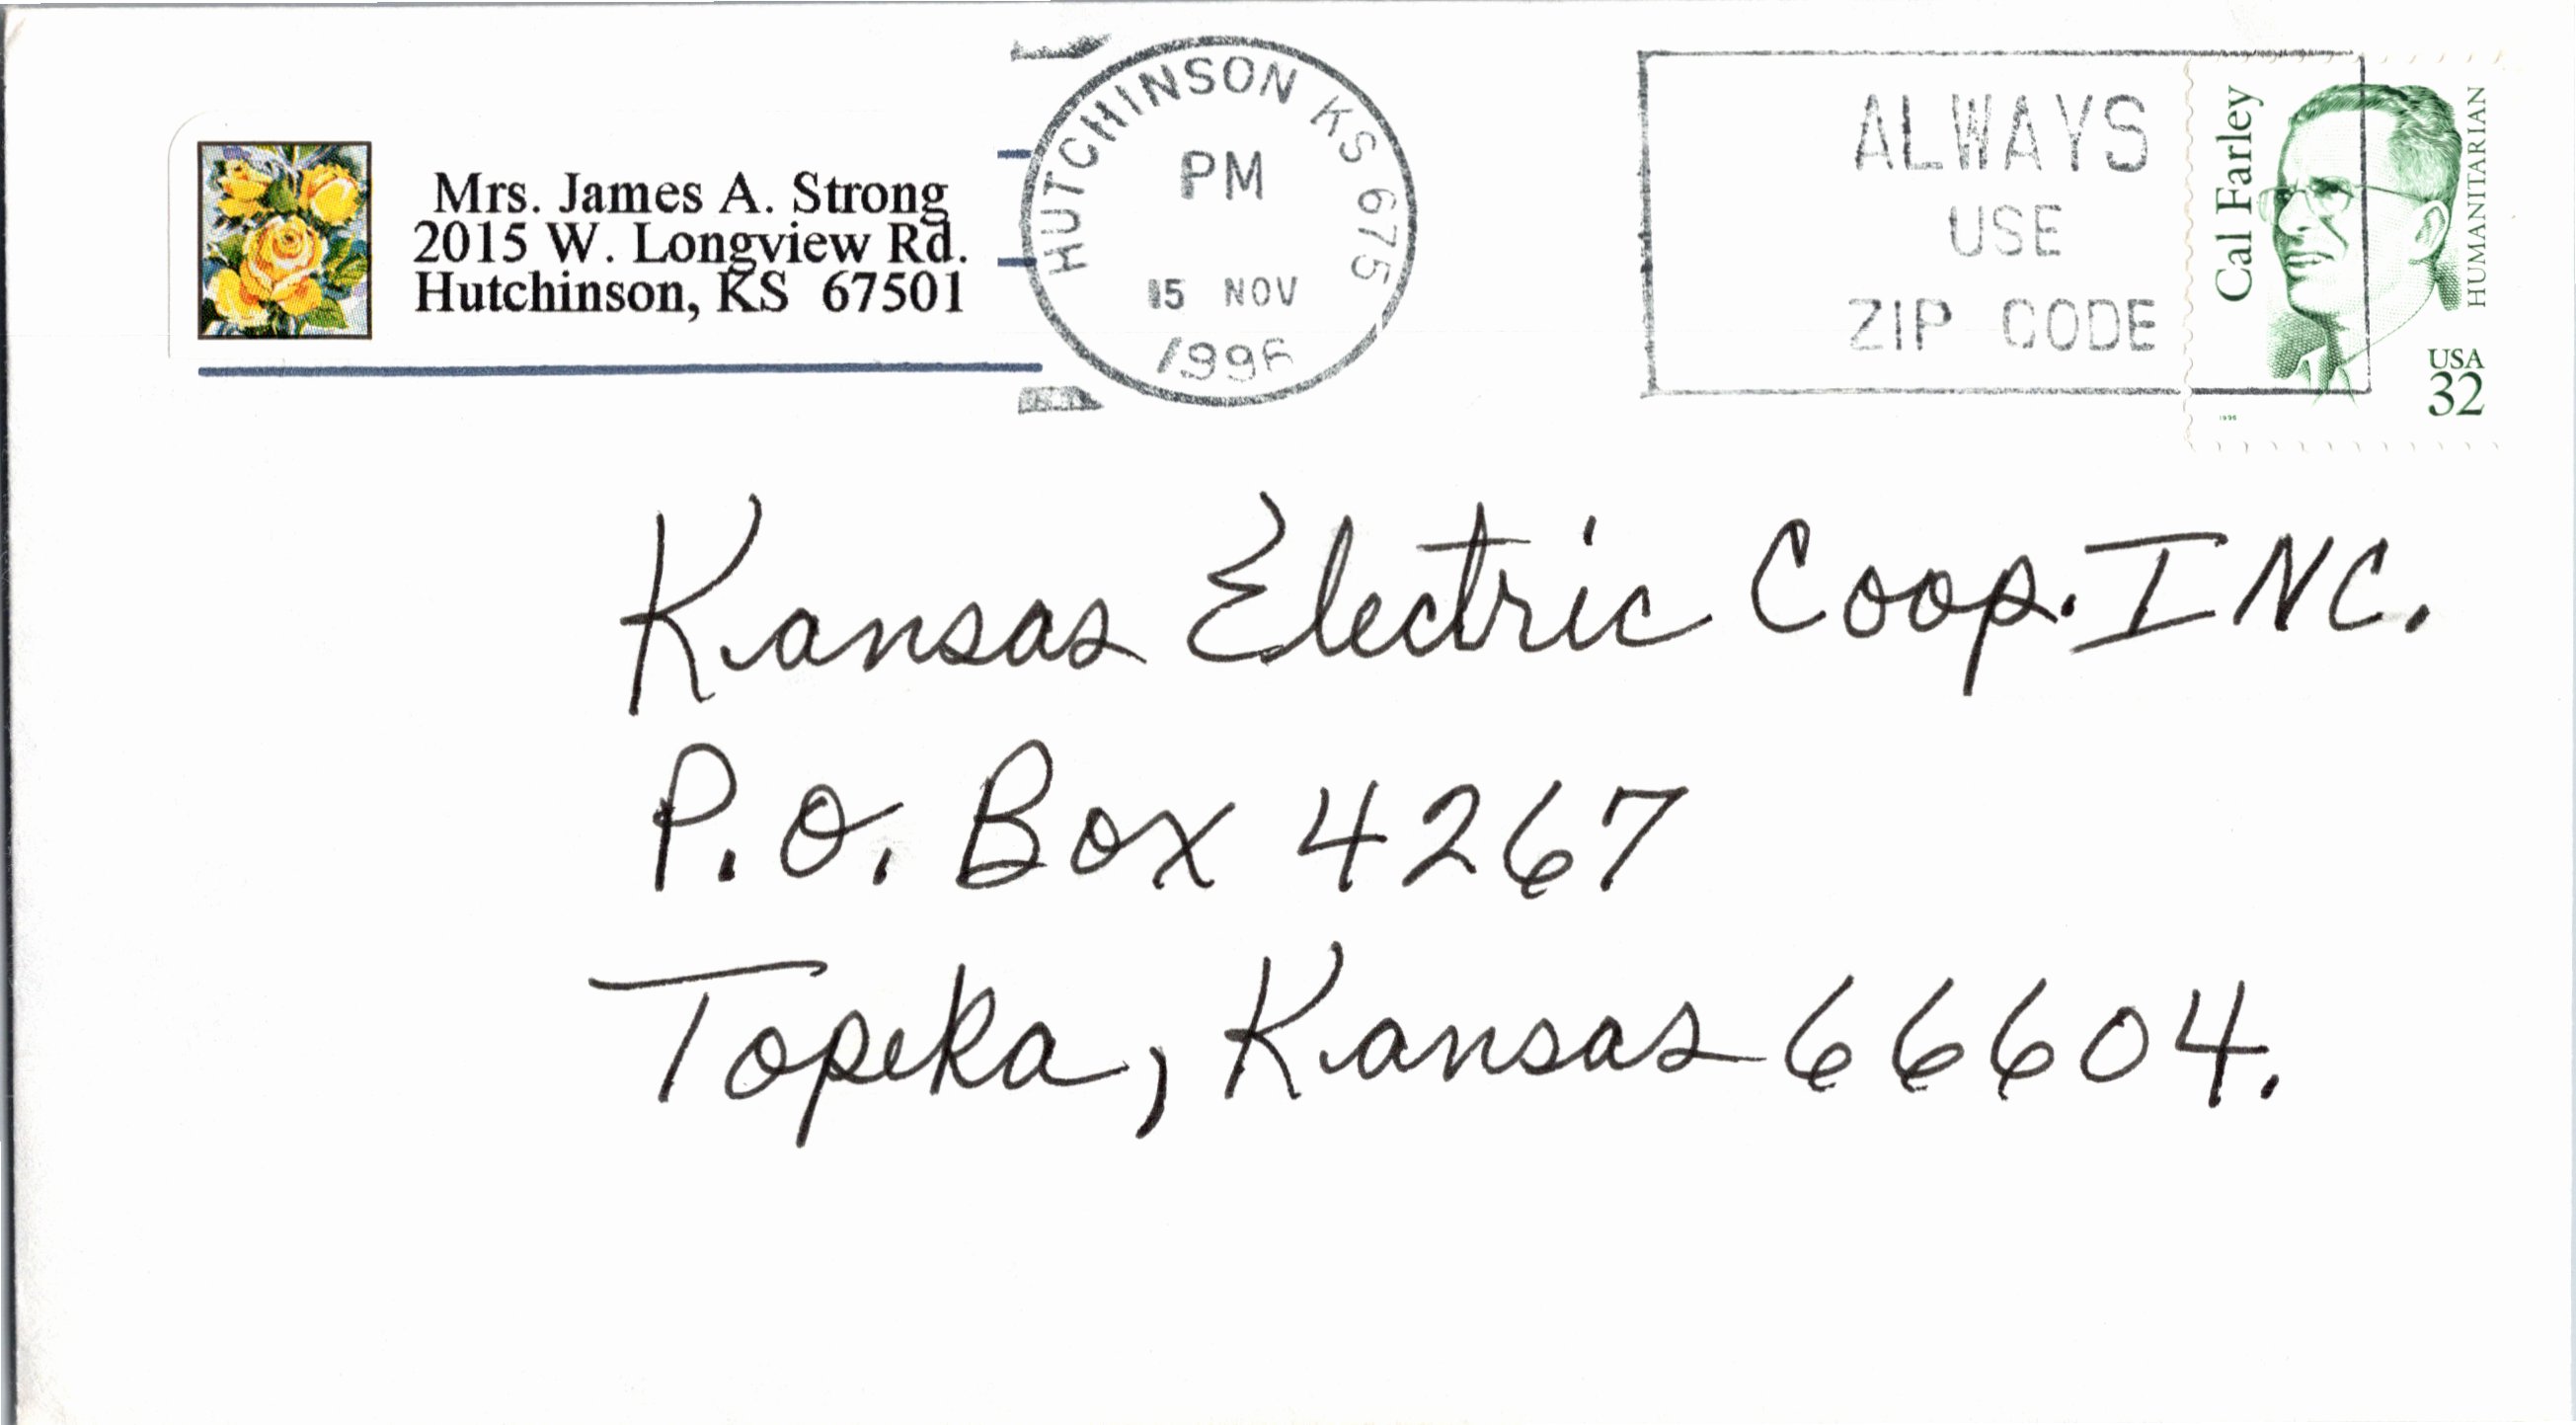 Mrs. James A. Strong
2015 W. Longview Rd.
Hutchinson, KS 67501
HUTCHINSON KS 675
PM
15 NOV
1996
ALWAYS
USE
ZIP CODE
Cal Farley
HUMANITARIAN
USA
32
1996
Kansas Electric Coop. INC.
P.O. Box 4267
Topeka, Kansas 66604.